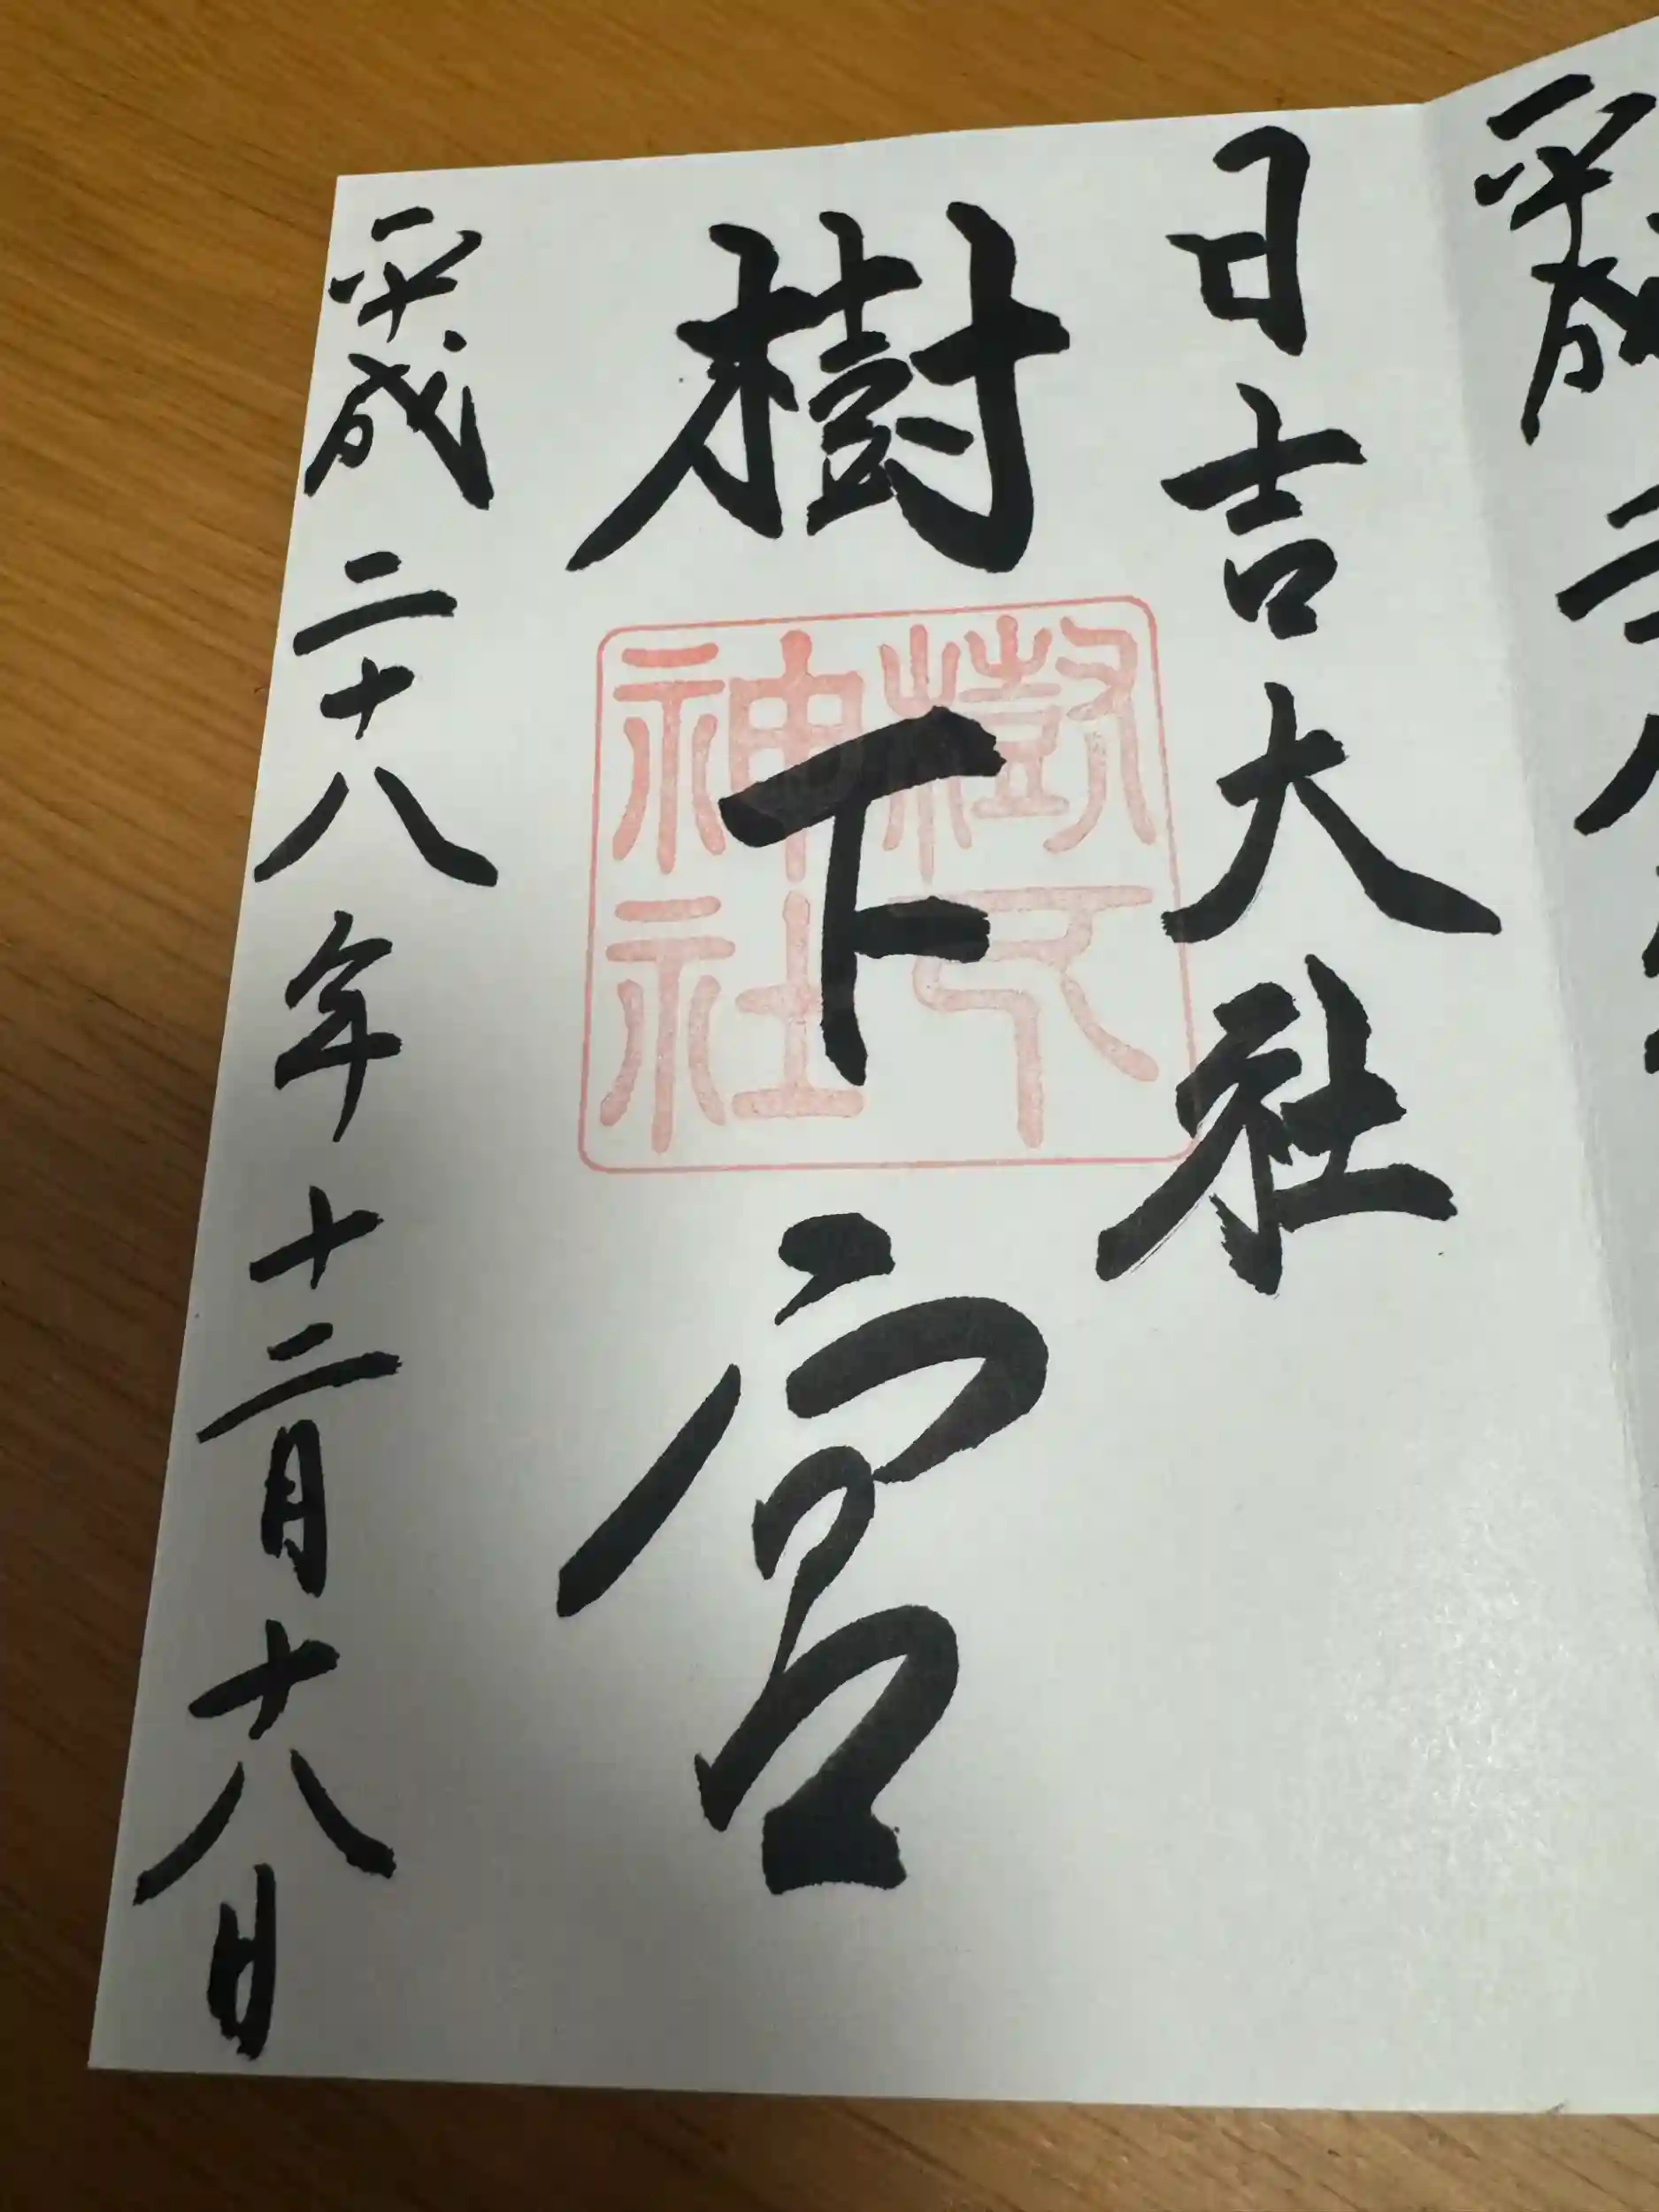 日吉大社
樹下宮
樹下神社
平成二十八年十二月十八日
平成二